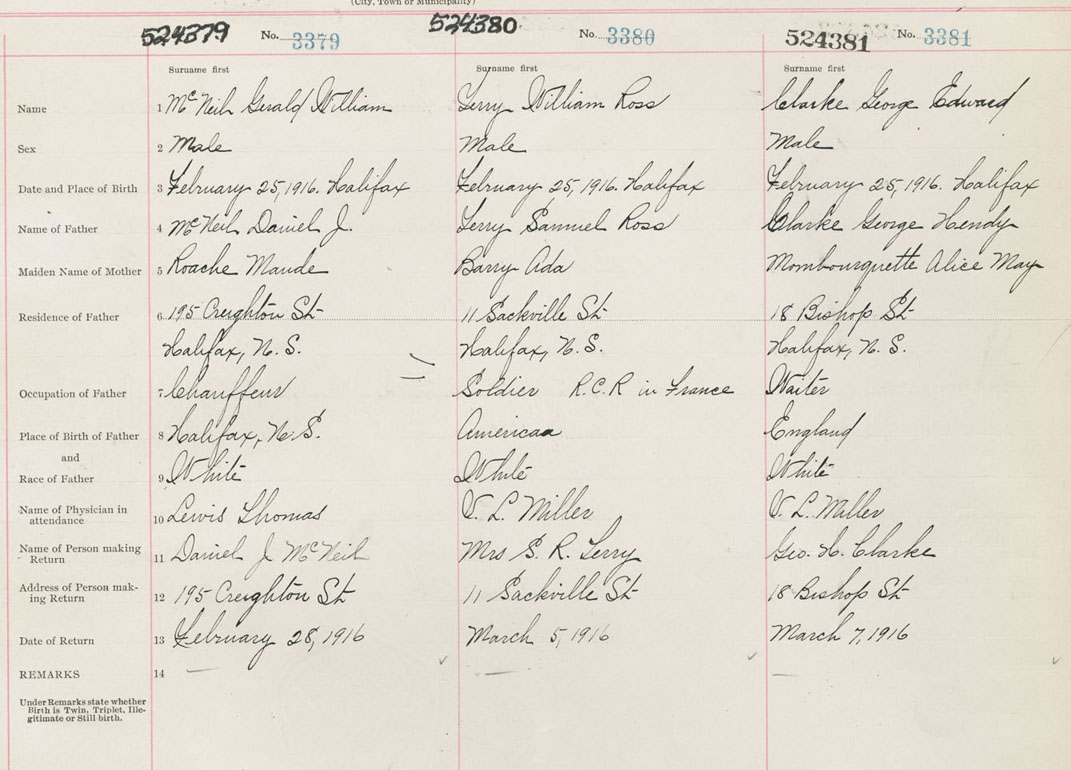 (City, Town or Municipality)
524379 No. 3379 524380 No. 3380 524381 No. 3381
Surname first Surname first Surname first
Name 1 McNeil Gerald William Terry William Ross Clarke George Edward
Sex 2 Male Male Male
Date and Place of Birth 3 February 25, 1916. Halifax February 25, 1916. Halifax February 25, 1916. Halifax
Name of Father 4 McNeil Daniel J. Terry Samuel Ross Clarke George Hendy
Maiden Name of Mother 5 Roache Maude Barry Ada Mombourquette Alice May
Residence of Father 6 195 Creighton St 11 Sackville St 18 Bishop St
Halifax, N.S. Halifax, N.S. Halifax, N.S.
Occupation of Father 7 Chauffeur Soldier R.C.R in France Waiter
Place of Birth of Father 8 Halifax, N.S. American England
and
Race of Father 9 White White White
Name of Physician in
attendance 10 Lewis Thomas V. L. Miller V. L. Miller
Name of Person making
Return 11 Daniel J McNeil Mrs S. R. Terry Geo. H. Clarke
Address of Person mak-
ing Return 12 195 Creighton St 11 Sackville St 18 Bishop St
Date of Return 13 February 28, 1916 March 5, 1916 March 7, 1916
REMARKS 14
Under Remarks state whether
Birth is Twin, Triplet, Ille-
gitimate or Still birth.